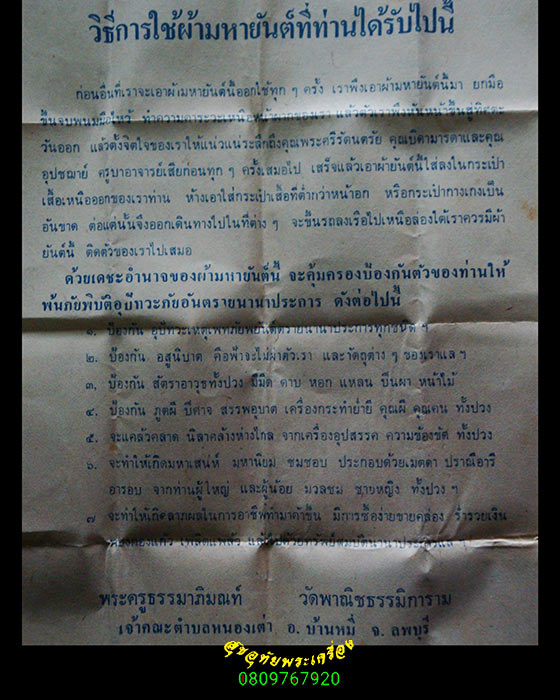 วิธีการใช้ผ้ามหายันต์ที่ท่านได้รับไปนี้
ก่อนอื่นที่เราจะเอาผ้ามหายันต์นี้ออกใช้ทุก ๆ ครั้ง เราพึงเอาผ้ามหายันต์นี้มา ยกมือ
ขึ้นจบพนมมือไหว้ ทำความเคารวะเหนือหน้าผากของเรา แล้วตัวเราพึงหันหน้าขึ้นสู่ทิศตะ
วันออก แล้วตั้งจิตใจของเราให้แน่วแน่ระลึกถึงคุณพระศรีรัตนตรัย คุณบิดามารดาและคุณ
อุปัชฌาย์ ครูบาอาจารย์เสียก่อนทุก ๆ ครั้งเสมอไป เสร็จแล้วเอาผ้ายันต์นี้ใส่ลงในกระเป๋า
เสื้อเหนือออกของเราท่าน ห้างเอาใส่กระเป๋าเสื้อที่ต่ำกว่าหน้าอก หรือกระเป๋ากางเกงเป็น
อันขาด ต่อแต่นั้นจึงออกเดินทางไปในที่ต่าง ๆ จะขึ้นรถลงเรือไปเหนือล่องใต้เราควรมีผ้า
ยันต์นี้ ติดตัวของเราไปเสมอ
ด้วยเดชะอำนาจของผ้ามหายันต์นี้ จะคุ้มครองป้องกันตัวของท่านให้
พ้นภัยพิบัติอุปัทวะภัยอันตรายนานาประการ ดังต่อไปนี้
๑. ป้องกัน อุปัทวะเหตุเภทภัยพยันตรายนานาประการทุกชนิด ฯ
๒. ป้องกัน อสุนิบาต คือฟ้าจะไม่ผ่าตัวเรา และวัตถุต่าง ๆ ของเราแล ฯ
๓. ป้องกัน สัตราอาวุธทั้งปวง มีมีด ดาบ หอก แหลน ปืนผา หน้าไม้
๔. ป้องกัน ภูตผี ปีศาจ สรรพอุบาต เครื่องกระทำย่ำยี คุณผี คุณคน ทั้งปวง
๕. จะแคล้วคลาด นิลาคล้างห่างไกล จากเครื่องอุปสรรค ความขัดข้อง ทั้งปวง
๖. จะทำให้เกิดมหาเสน่ห์ มหานิยม ชมชอบ ประกอบด้วยเมตตา ปราณีอารี
อารอบ จากท่านผู้ใหญ่ และผู้น้อย มวลชน ชายหญิง ทั้งปวง ฯ
๗ จะทำให้เกิดลาภผลในการอาชีพทำมาค้าขึ้น มีการซื้อง่ายขายคล่อง ร่ำรวยเงิน
พระครูธรรมาภิมณฑ์ วัดพาณิชธรรมิการาม
เจ้าคณะตำบลหนองเต่า อ. บ้านหมี่ จ. ลพบุรี
สุขอุทัยพระเครื่อง
0809767920